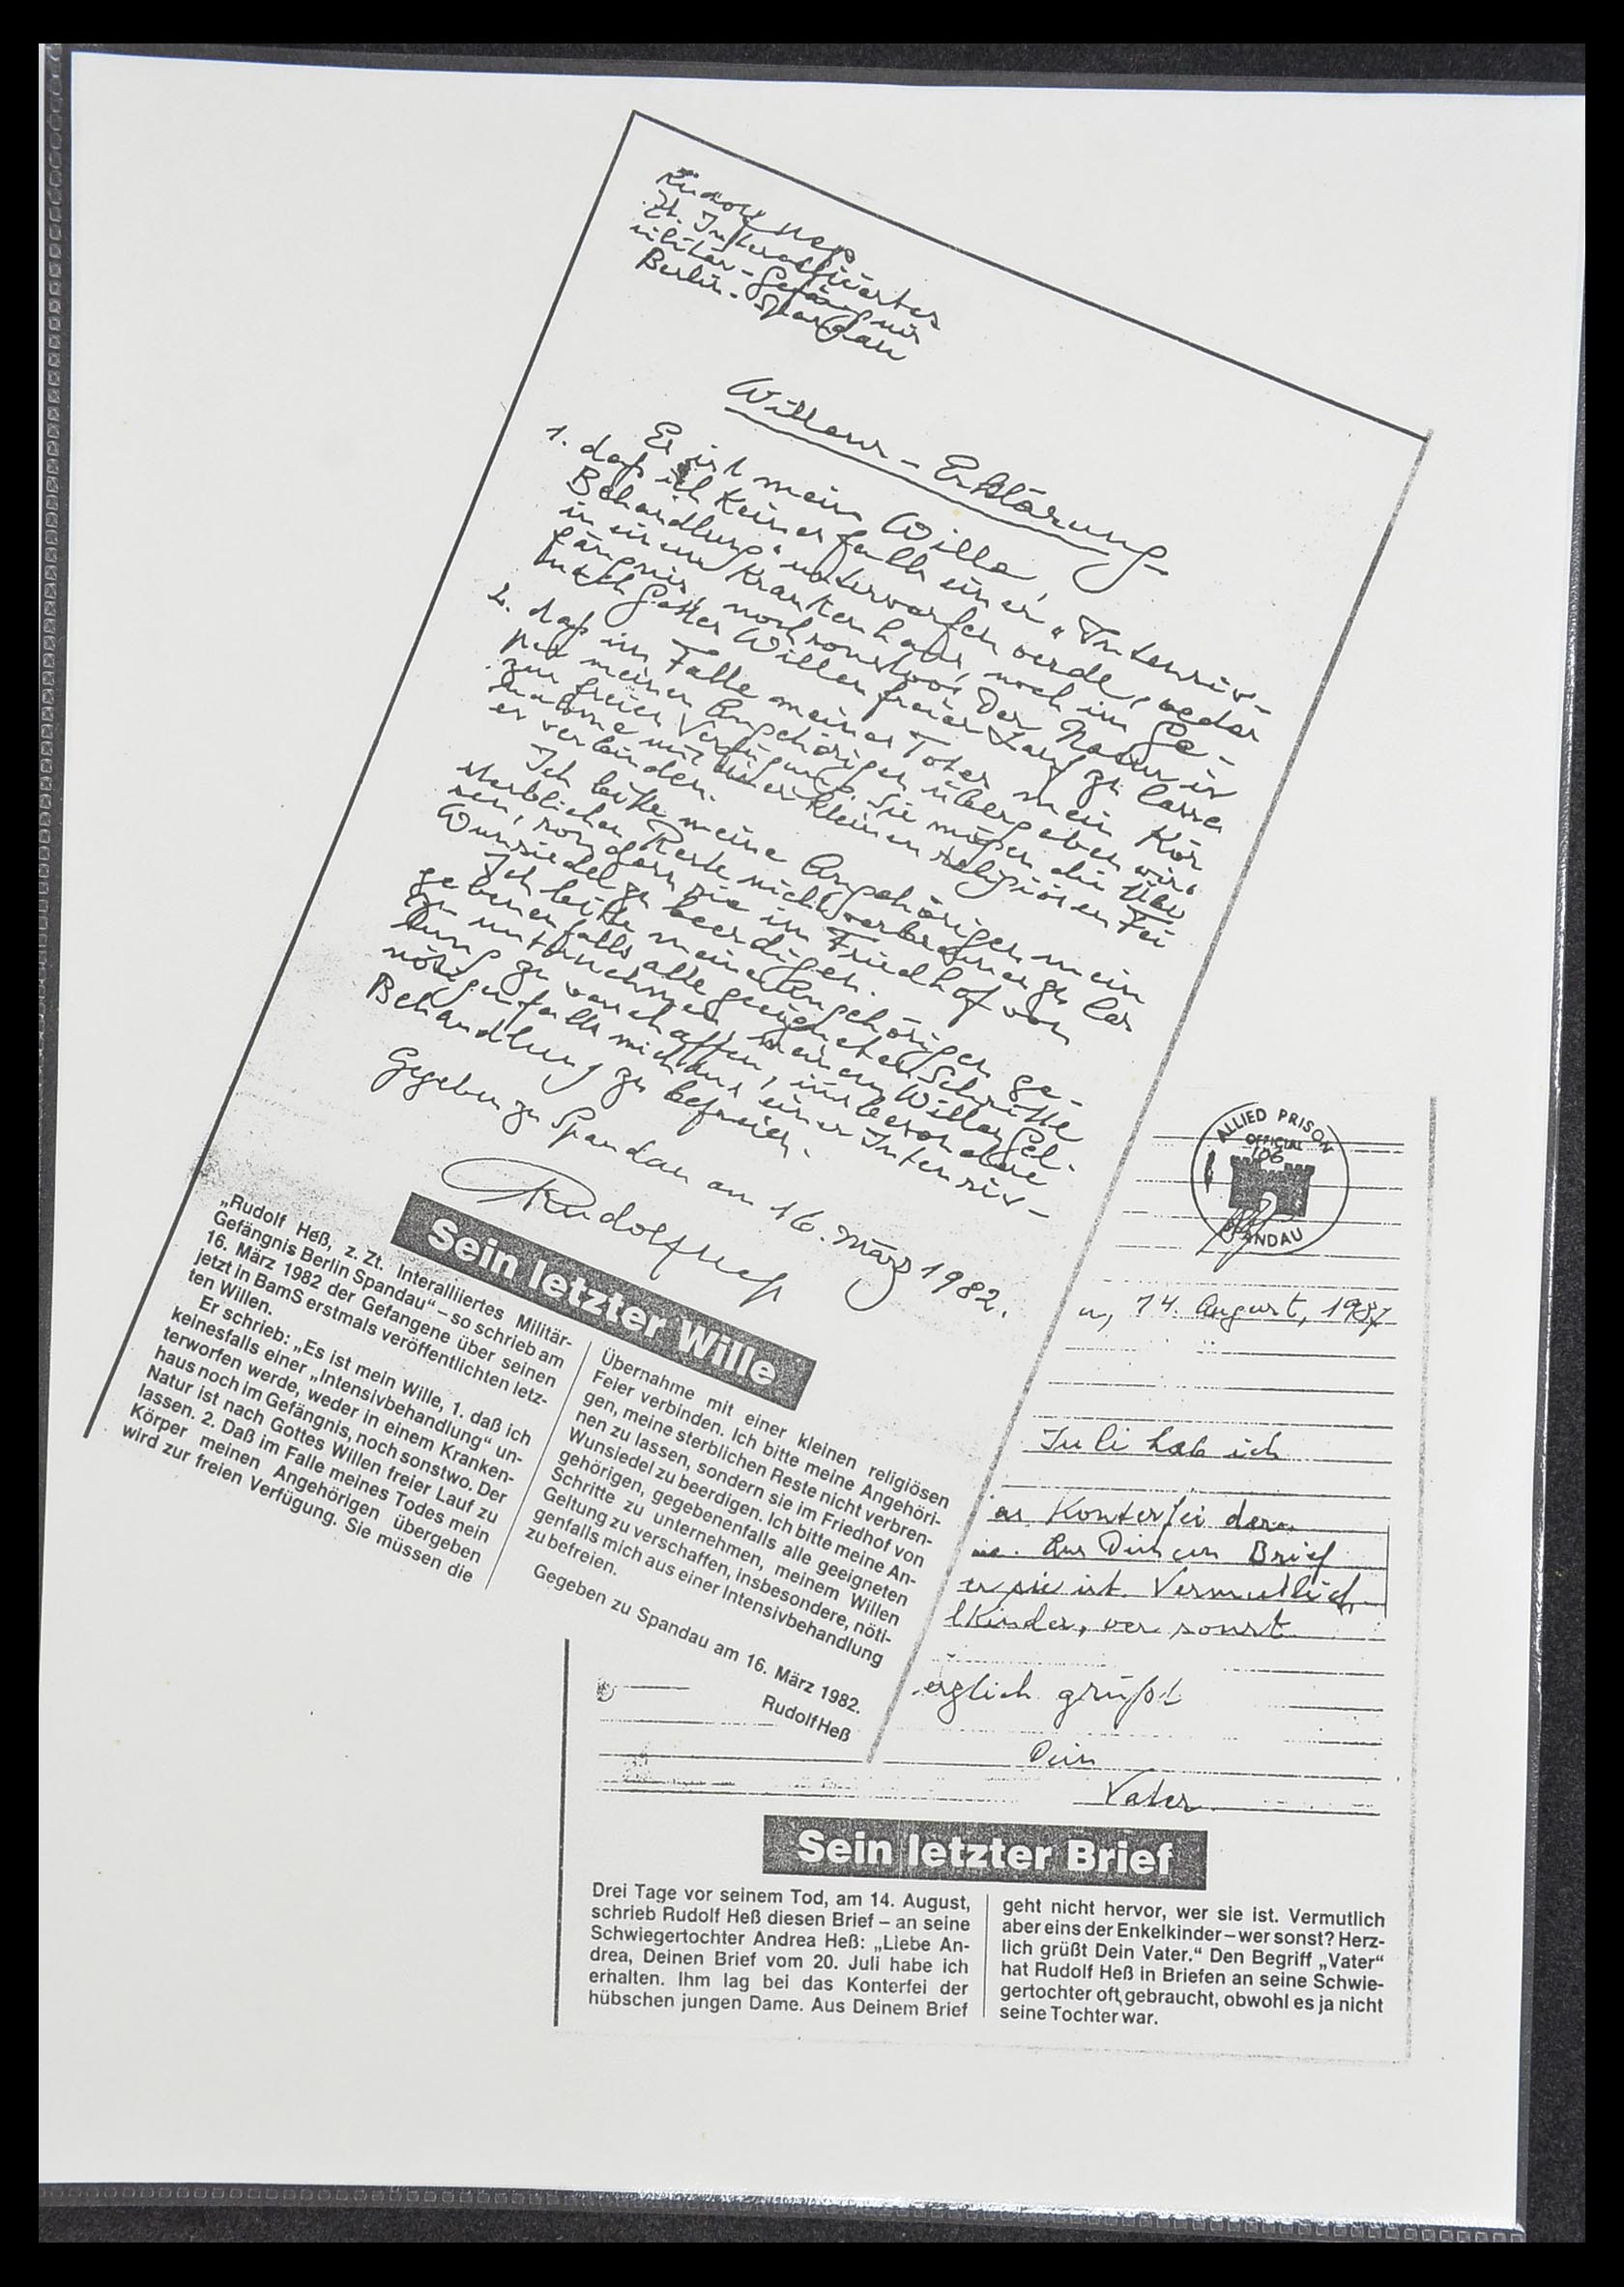 Rudolf Hess
Zt. Interalliiertes
Militär-Gefängnis
Berlin-Spandau
Willens-Erklärung
Es ist mein Wille,
1. daß ich keinesfalls einer „Intensiv-
Behandlung" unterworfen werde, weder
in einem Krankenhaus, noch im Ge-
fängnis, noch sonstwo. Der Natur ist
nach Gottes Willen freier Lauf zu lasse
2. daß im Falle meines Todes mein Kör
per meinen Angehörigen übergeben wird
zur freien Verfügung. Sie mögen die Über
nahme mit einer kleinen religiösen Fei
er verbinden.
Ich bitte meine Angehörigen mein
sterblichen Reste nicht verbrennen zu las
sen, sondern sie im Friedhof von
Wunsiedel zu beerdigen.
Ich bitte meine Angehörigen ge-
gebenenfalls alle geeigneten Schritte
zu unternehmen, meinem Willen Gel-
tung zu verschaffen, insbesondere
nötigenfalls mich aus einer Intensiv-
Behandlung zu befreien.
Gegeben zu Spandau am 16. März 1982.
Rudolf Heß
Sein letzter Wille
„Rudolf Heß, z. Zt. Interalliiertes Militär-
Gefängnis Berlin Spandau“ – so schrieb am
16. März 1982 der Gefangene über seinen
jetzt in BamS erstmals veröffentlichten letz-
ten Willen.
Er schrieb: „Es ist mein Wille, 1. daß ich
keinesfalls einer „Intensivbehandlung“ un-
terworfen werde, weder in einem Kranken-
haus noch im Gefängnis, noch sonstwo. Der
Natur ist nach Gottes Willen freier Lauf zu
lassen. 2. Daß im Falle meines Todes mein
Körper meinen Angehörigen übergeben
wird zur freien Verfügung. Sie müssen die
Übernahme mit einer kleinen religiösen
Feier verbinden. Ich bitte meine Angehöri-
gen, meine sterblichen Reste nicht verbren-
nen zu lassen, sondern sie im Friedhof von
Wunsiedel zu beerdigen. Ich bitte meine An-
gehörigen, gegebenenfalls alle geeigneten
Schritte zu unternehmen, meinem Willen
Geltung zu verschaffen, insbesondere, nöti-
genfalls mich aus einer Intensivbehandlung
zu befreien.
Gegeben zu Spandau am 16. März 1982.
Rudolf Heß
ALLIED PRISON
OFFICIAL
106
SPANDAU
14. August, 1987
Juli hab ich
Konterfei der
Aus Deinem Brief
er sie ist. Vermutlich
lkinder, wer sonst
erzlich grüßt
Dein
Vater.
Sein letzter Brief
Drei Tage vor seinem Tod, am 14. August,
schrieb Rudolf Heß diesen Brief – an seine
Schwiegertochter Andrea Heß: „Liebe An-
drea, Deinen Brief vom 20. Juli habe ich
erhalten. Ihm lag bei das Konterfei der
hübschen jungen Dame. Aus Deinem Brief
geht nicht hervor, wer sie ist. Vermutlich
aber eins der Enkelkinder – wer sonst? Herz-
lich grüßt Dein Vater.“ Den Begriff „Vater“
hat Rudolf Heß in Briefen an seine Schwie-
gertochter oft gebraucht, obwohl es ja nicht
seine Tochter war.